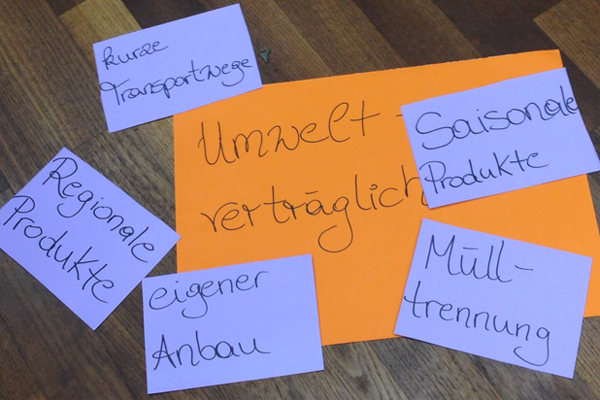 kurze
Transportwege
Umwelt-
verträglich
Saisonale
Produkte
Regionale
Produkte
eigener
Anbau
Müll-
trennung